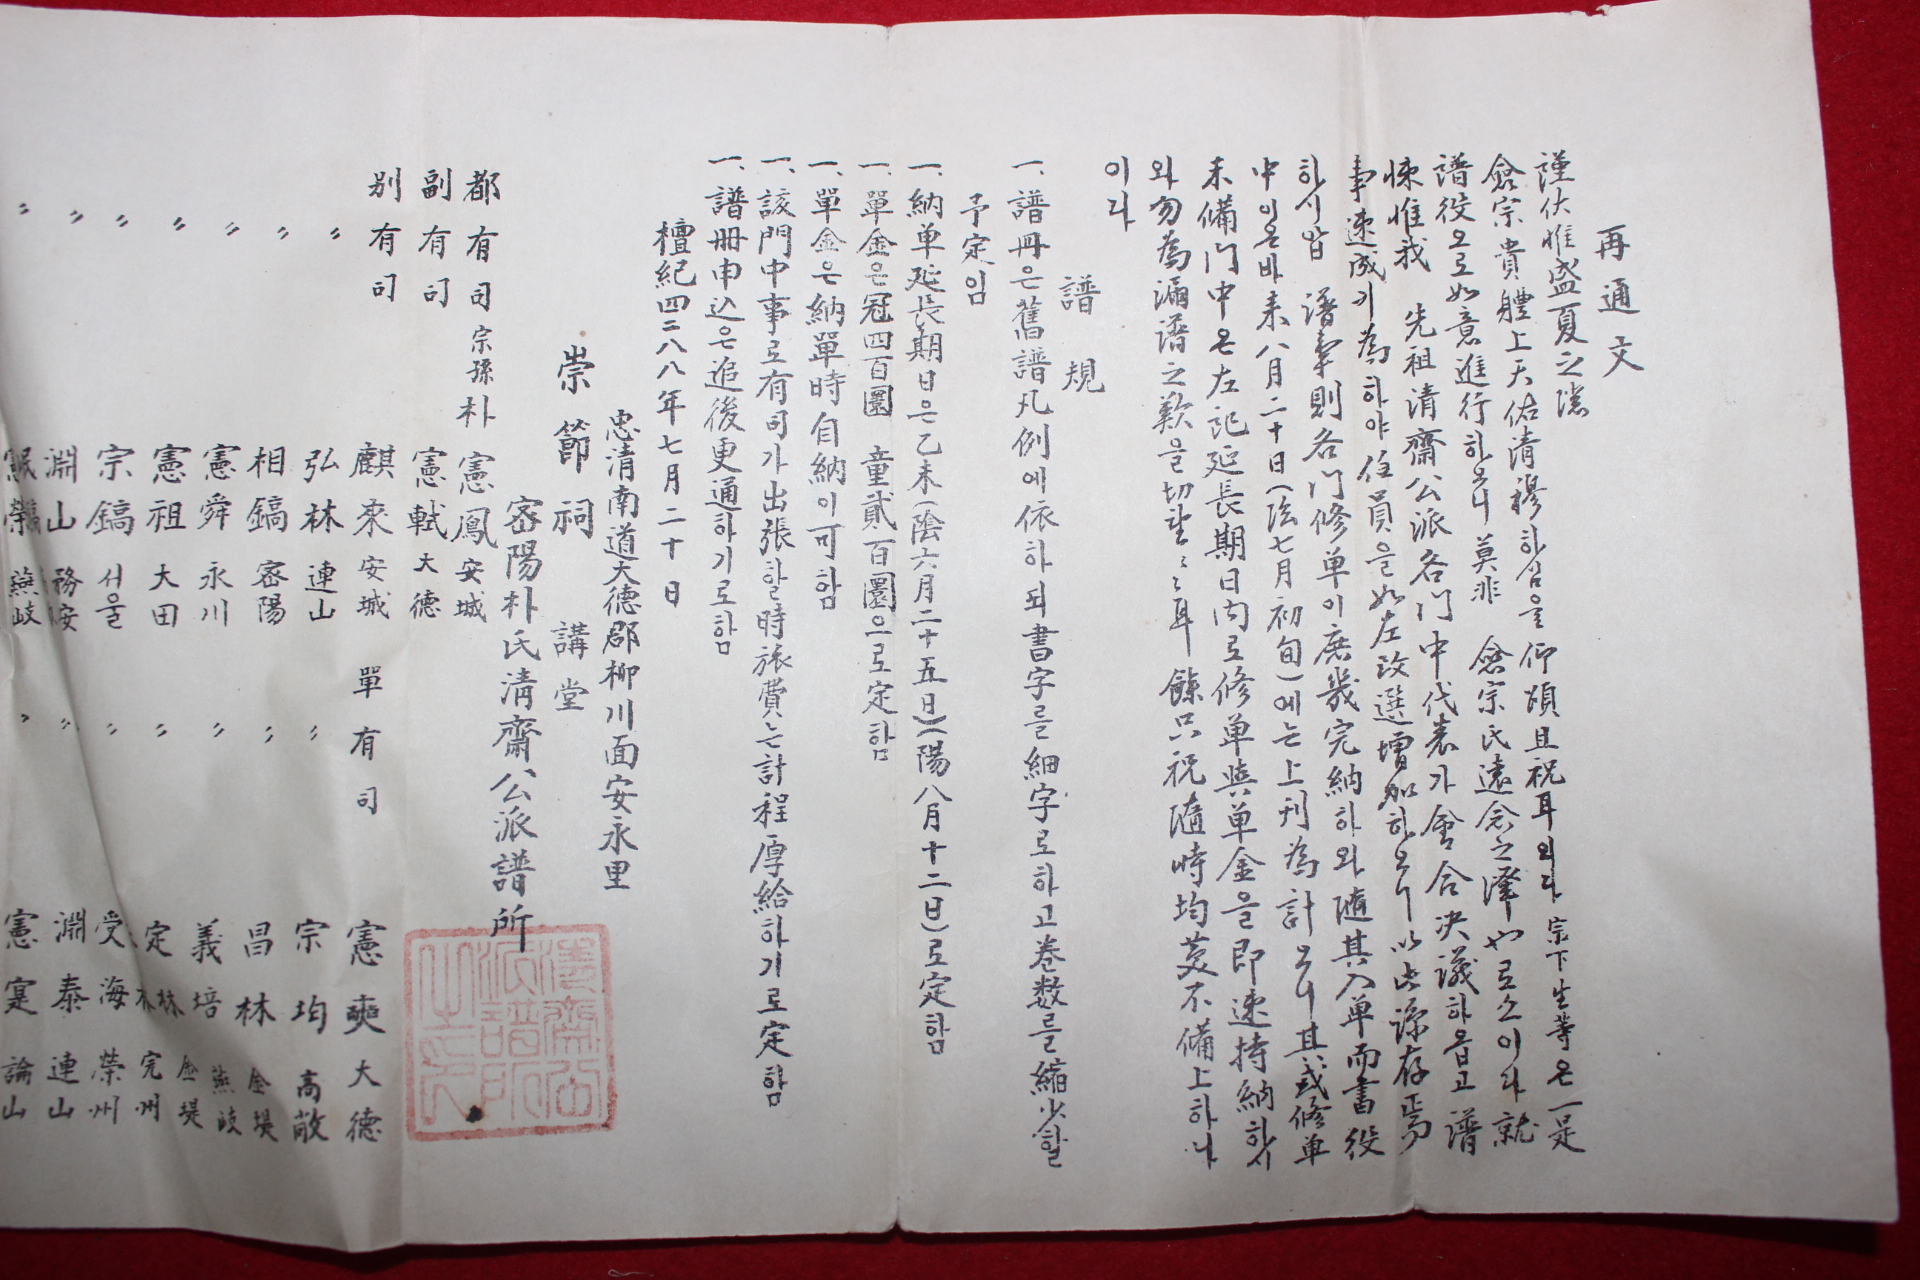 再通文
謹伏惟盛夏之際
僉宗貴體上天佑淸穆하심을仰頌且祝耳외다 宗下生等은一是
譜役으로如意進行하오니莫非 僉宗氏遠念之澤也로소이다就
悚惟我 先祖淸齋公派各門中代表가會合決議하옵고譜
事速成키爲하야任員을如左改選增加하오니以此諒存焉
하시압 譜事則各門修单이庶幾完納하와隨其入单而書役
中이온바来八月二十日(陰七月初旬)에는上刊爲計오니其或修単
未備门中은左記延長期日內로修単與単金을即速持納하시
와勿爲漏譜之歎을切望〻〻耳 餘只祝隨時均茣不備上하나
이다
譜規
一、譜冊은舊譜凡例에依하되書字를細字로하고巻数를縮少할
予定임
一、納单延長期日은乙未(陰六月二十五日)(陽八月十二日)로定함
一、單金은冠四百圜 童貳百圜으로定함
一、單金은納單時自納이可함
一、該門中事로有司가出張할時旅費는計程厚給하기로定함
一、譜冊申込은追後更通하기로함
檀紀四二八八年七月二十日
忠淸南道大德郡柳川面安永里
崇節祠 講堂
密陽朴氏淸齋公派譜所
淸齋公派譜所之印
都有司 宗孫朴 憲鳳 安城
副有司 憲軾 大德
別有司 麒來 安城 單有司 憲奭 大德
〃 弘林 連山 〃 宗均 高敞
〃 相鎬 密陽 〃 昌林 金堤
〃 憲舜 永川 〃 義培 燕岐
〃 憲祖 大田 〃 定林 完州 金堤
〃 宗鎬 서울 〃 受海 榮州
〃 淵山 務安 〃 淵泰 連山
〃 燕岐 〃 憲寔 論山